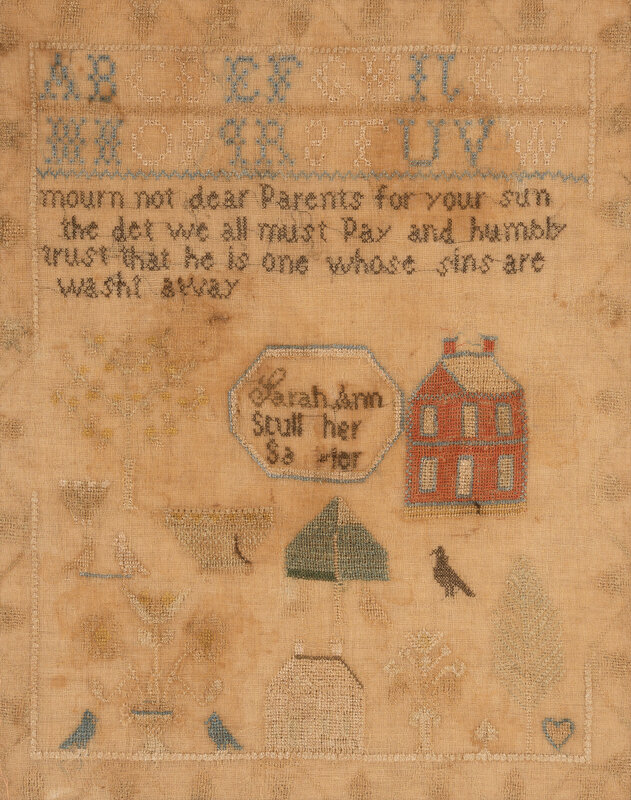 AB CD EF GH IJ KL
MN OP qR ST UV W
mourn not dear Parents for your sun
the det we all must Pay and humbly
trust that he is one whose sins are
washt away
Sarah Ann
Stull her